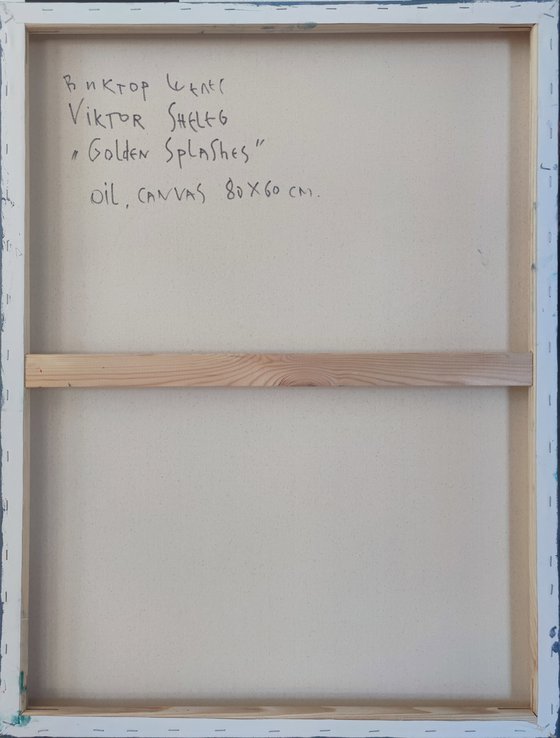 Виктор Шелег
Viktor Sheleg
„Golden Splashes”
oil, canvas 80x60 cm.